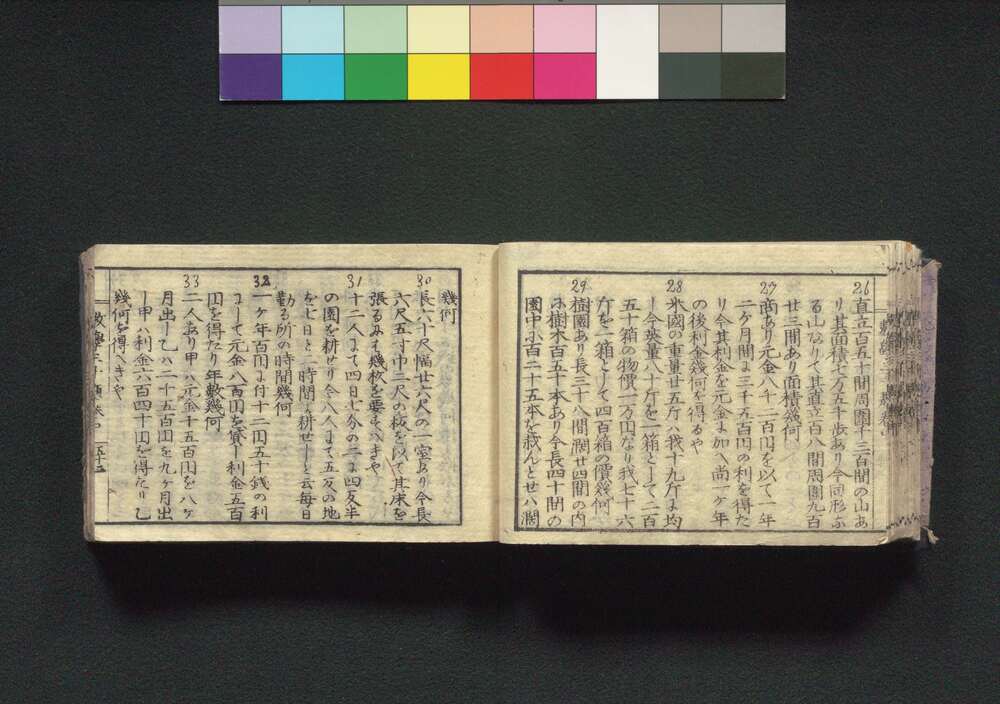 26
直立百五十間周圍十三百間の山あ
り其面積七万五千歩あり今同形ふ
る山なりて其直立百八間周圍九百
廿三間あり面積幾何
27
商あり元金八千二百円を以て一年
二ケ月間よ三千五百円の利を得た
り今其利金を元金よ加へ尚一ケ年
の後利金幾何を得るや
28
米國の重量廿五斤ハ我十九斤よ均
し今英量八十斤を一箱として二百
五十箱の物價一万円なり我七十六
斤を一箱として四百箱の價幾何
29
樹園あり長三十八間濶廿四間の内
よ樹木百五十本あり今長四十間の
園中ふ百二十五本を栽んとせハ濶
幾何
30
長六十尺幅廿六尺の一室あり今長
六尺五寸巾三尺の板を以て其床を
張るみて幾枚を要すへきや
31
十二人よて四日七分の二よ四反半
の園を耕せり今八人よて五反の地
を七日と二時間よ耕せしと云毎日
勤る所の時間幾何
32
一ケ年百円よ付十二円五十銭の利
よして元金八百円を貸し利金五百
円を得たり年數幾何
33
二人あり甲ハ元金千五百円を八ケ
月出し乙ハ二千五百円を九ケ月出
し甲ハ利金六百四十円を得たり乙
幾何を得へきや
五十三